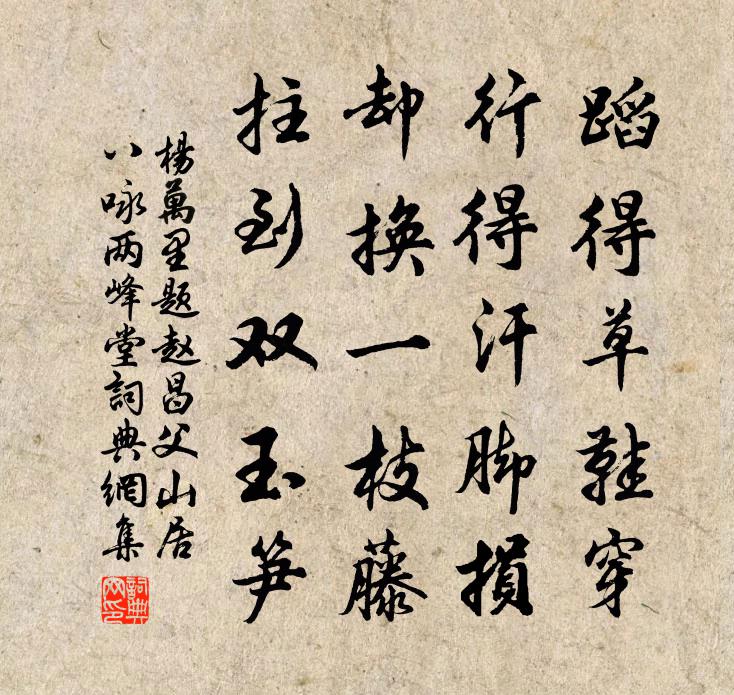 蹈得草鞋穿
行得汗脚損
却换一枝藤
拄到双玉笋
楊萬里题赵昌父山居
八咏两峰堂詞典網集
詞典
网印